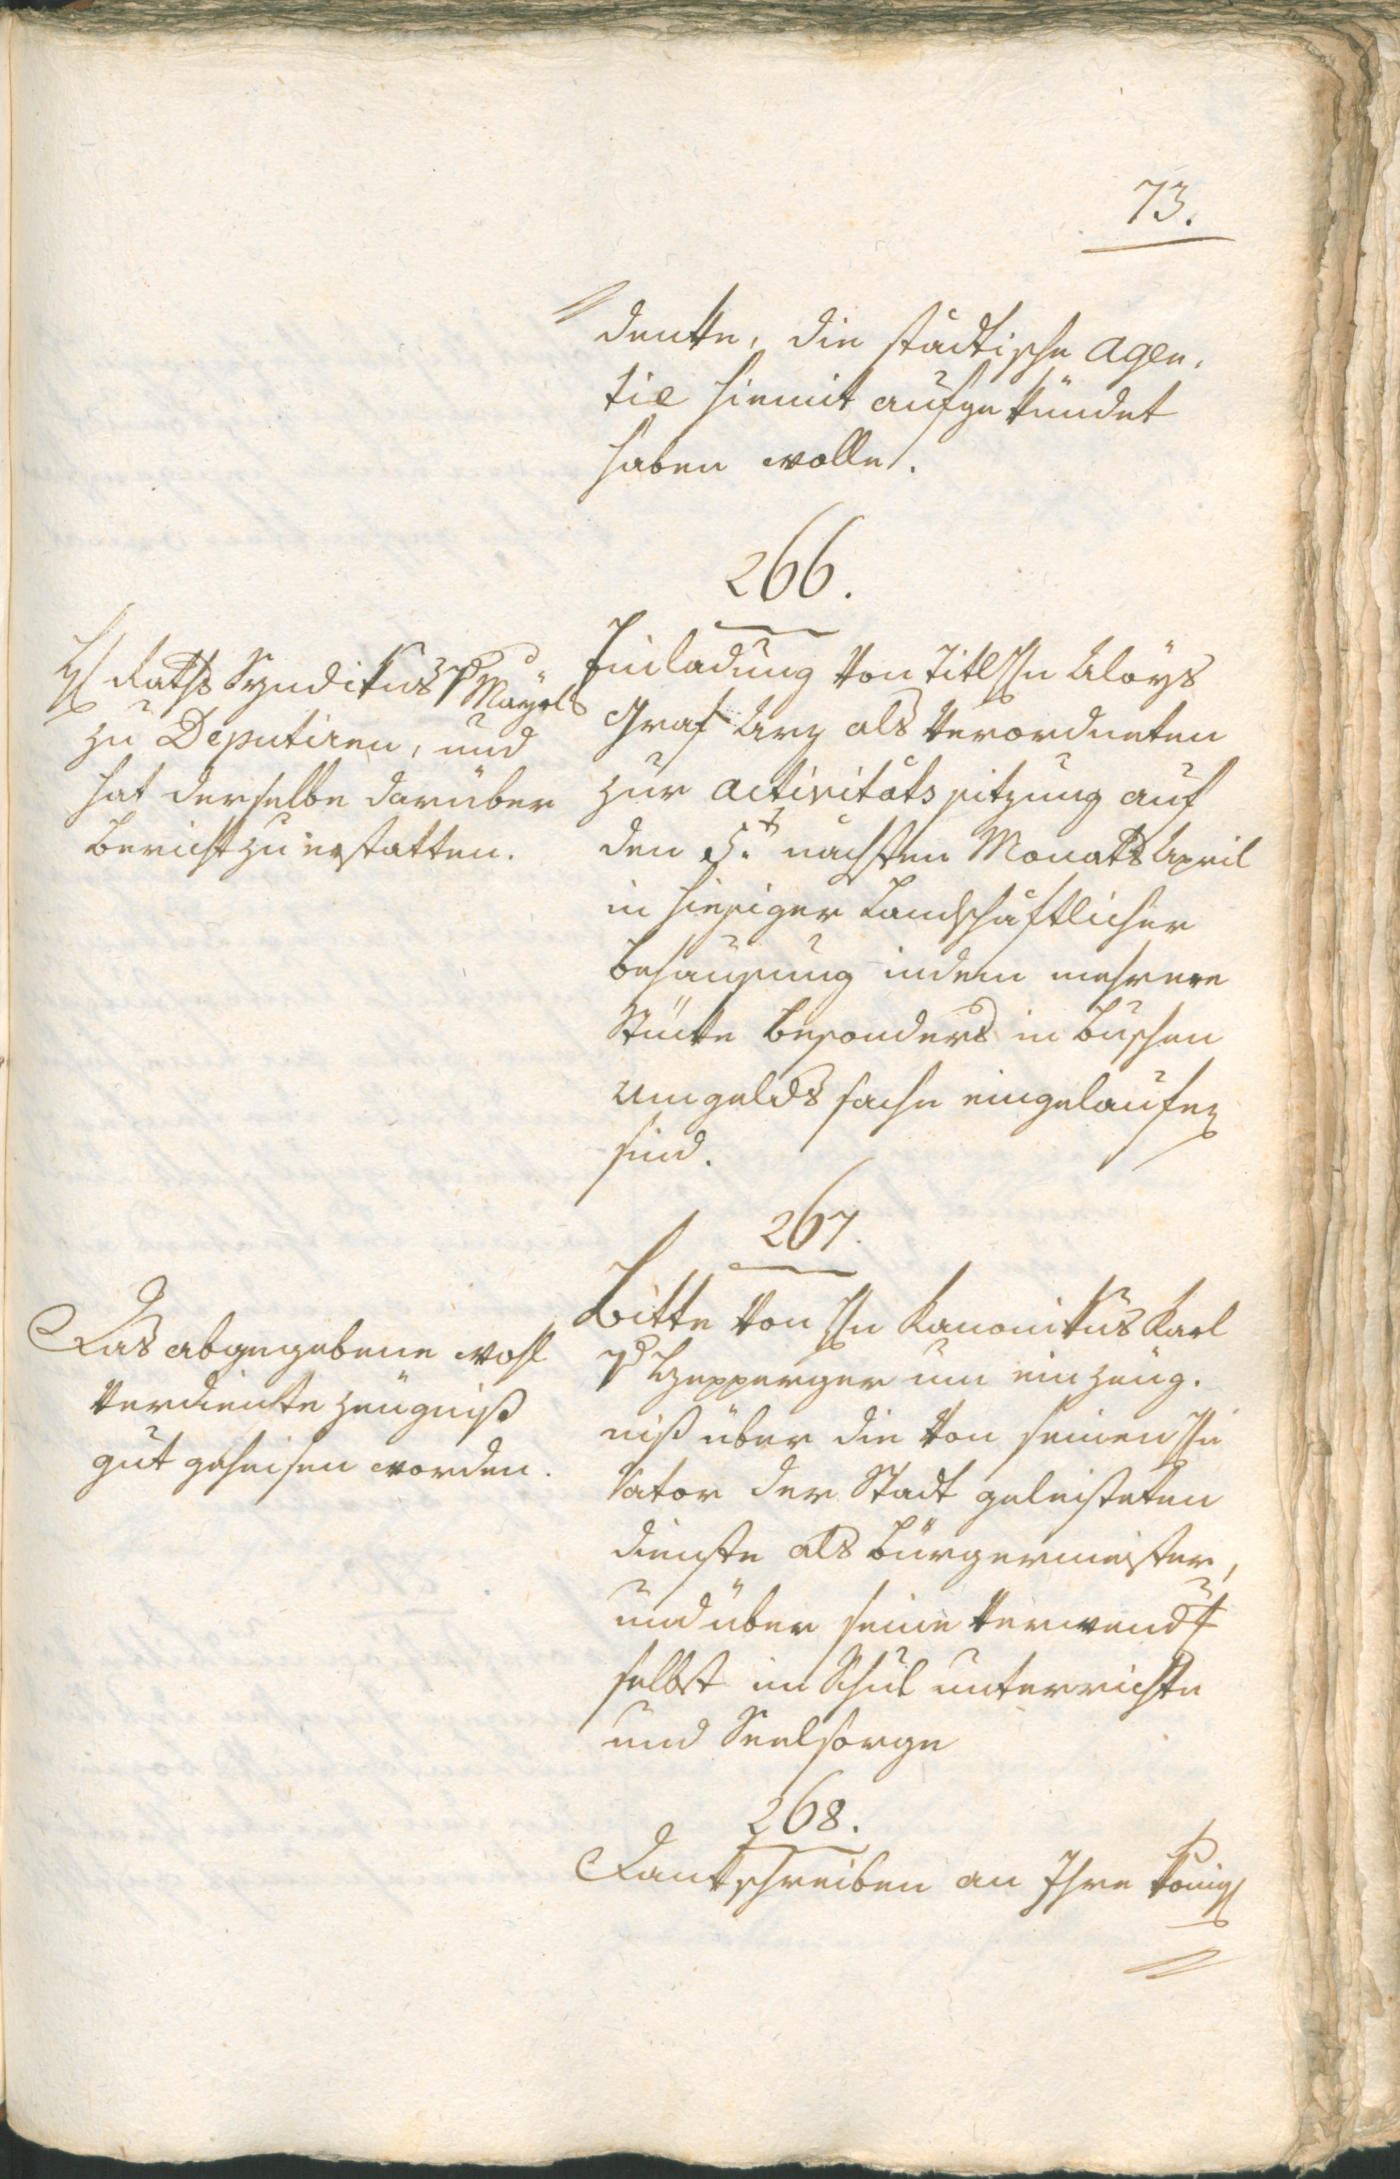 73.
denke, die städtische Agen,
tie hiemit aufgekündet
haben wolle.
266.
Einladung von Titl Hn Aloys
Graf Arz als Verordneten
zur Activitäts sitzung auf
den 5.t nächsten Monats April
in hiesiger Landschäftlicher
Behausung indem mehrere
Stücke besonders in
Umgelds sache eingelaufen
sind.
H Raths Syndikus v Mayrl
zu Deputiren, und
hat derselbe darüber
Bericht zu erstatten.
267.
Bitte von Hn Kanonikus Karl
v Hepperger um ein Zeug,
niß über die von seinen Hn
Vater der Stadt geleisteten
Dienste als Bürgermeister,
und über seine Verwendug
selbst im Schul unterrichte
und Seelsorge
Das abgegebene wohl
verdiente Zeugniß
gut geheisen worden.
268.
Dankschreiben an Ihre König